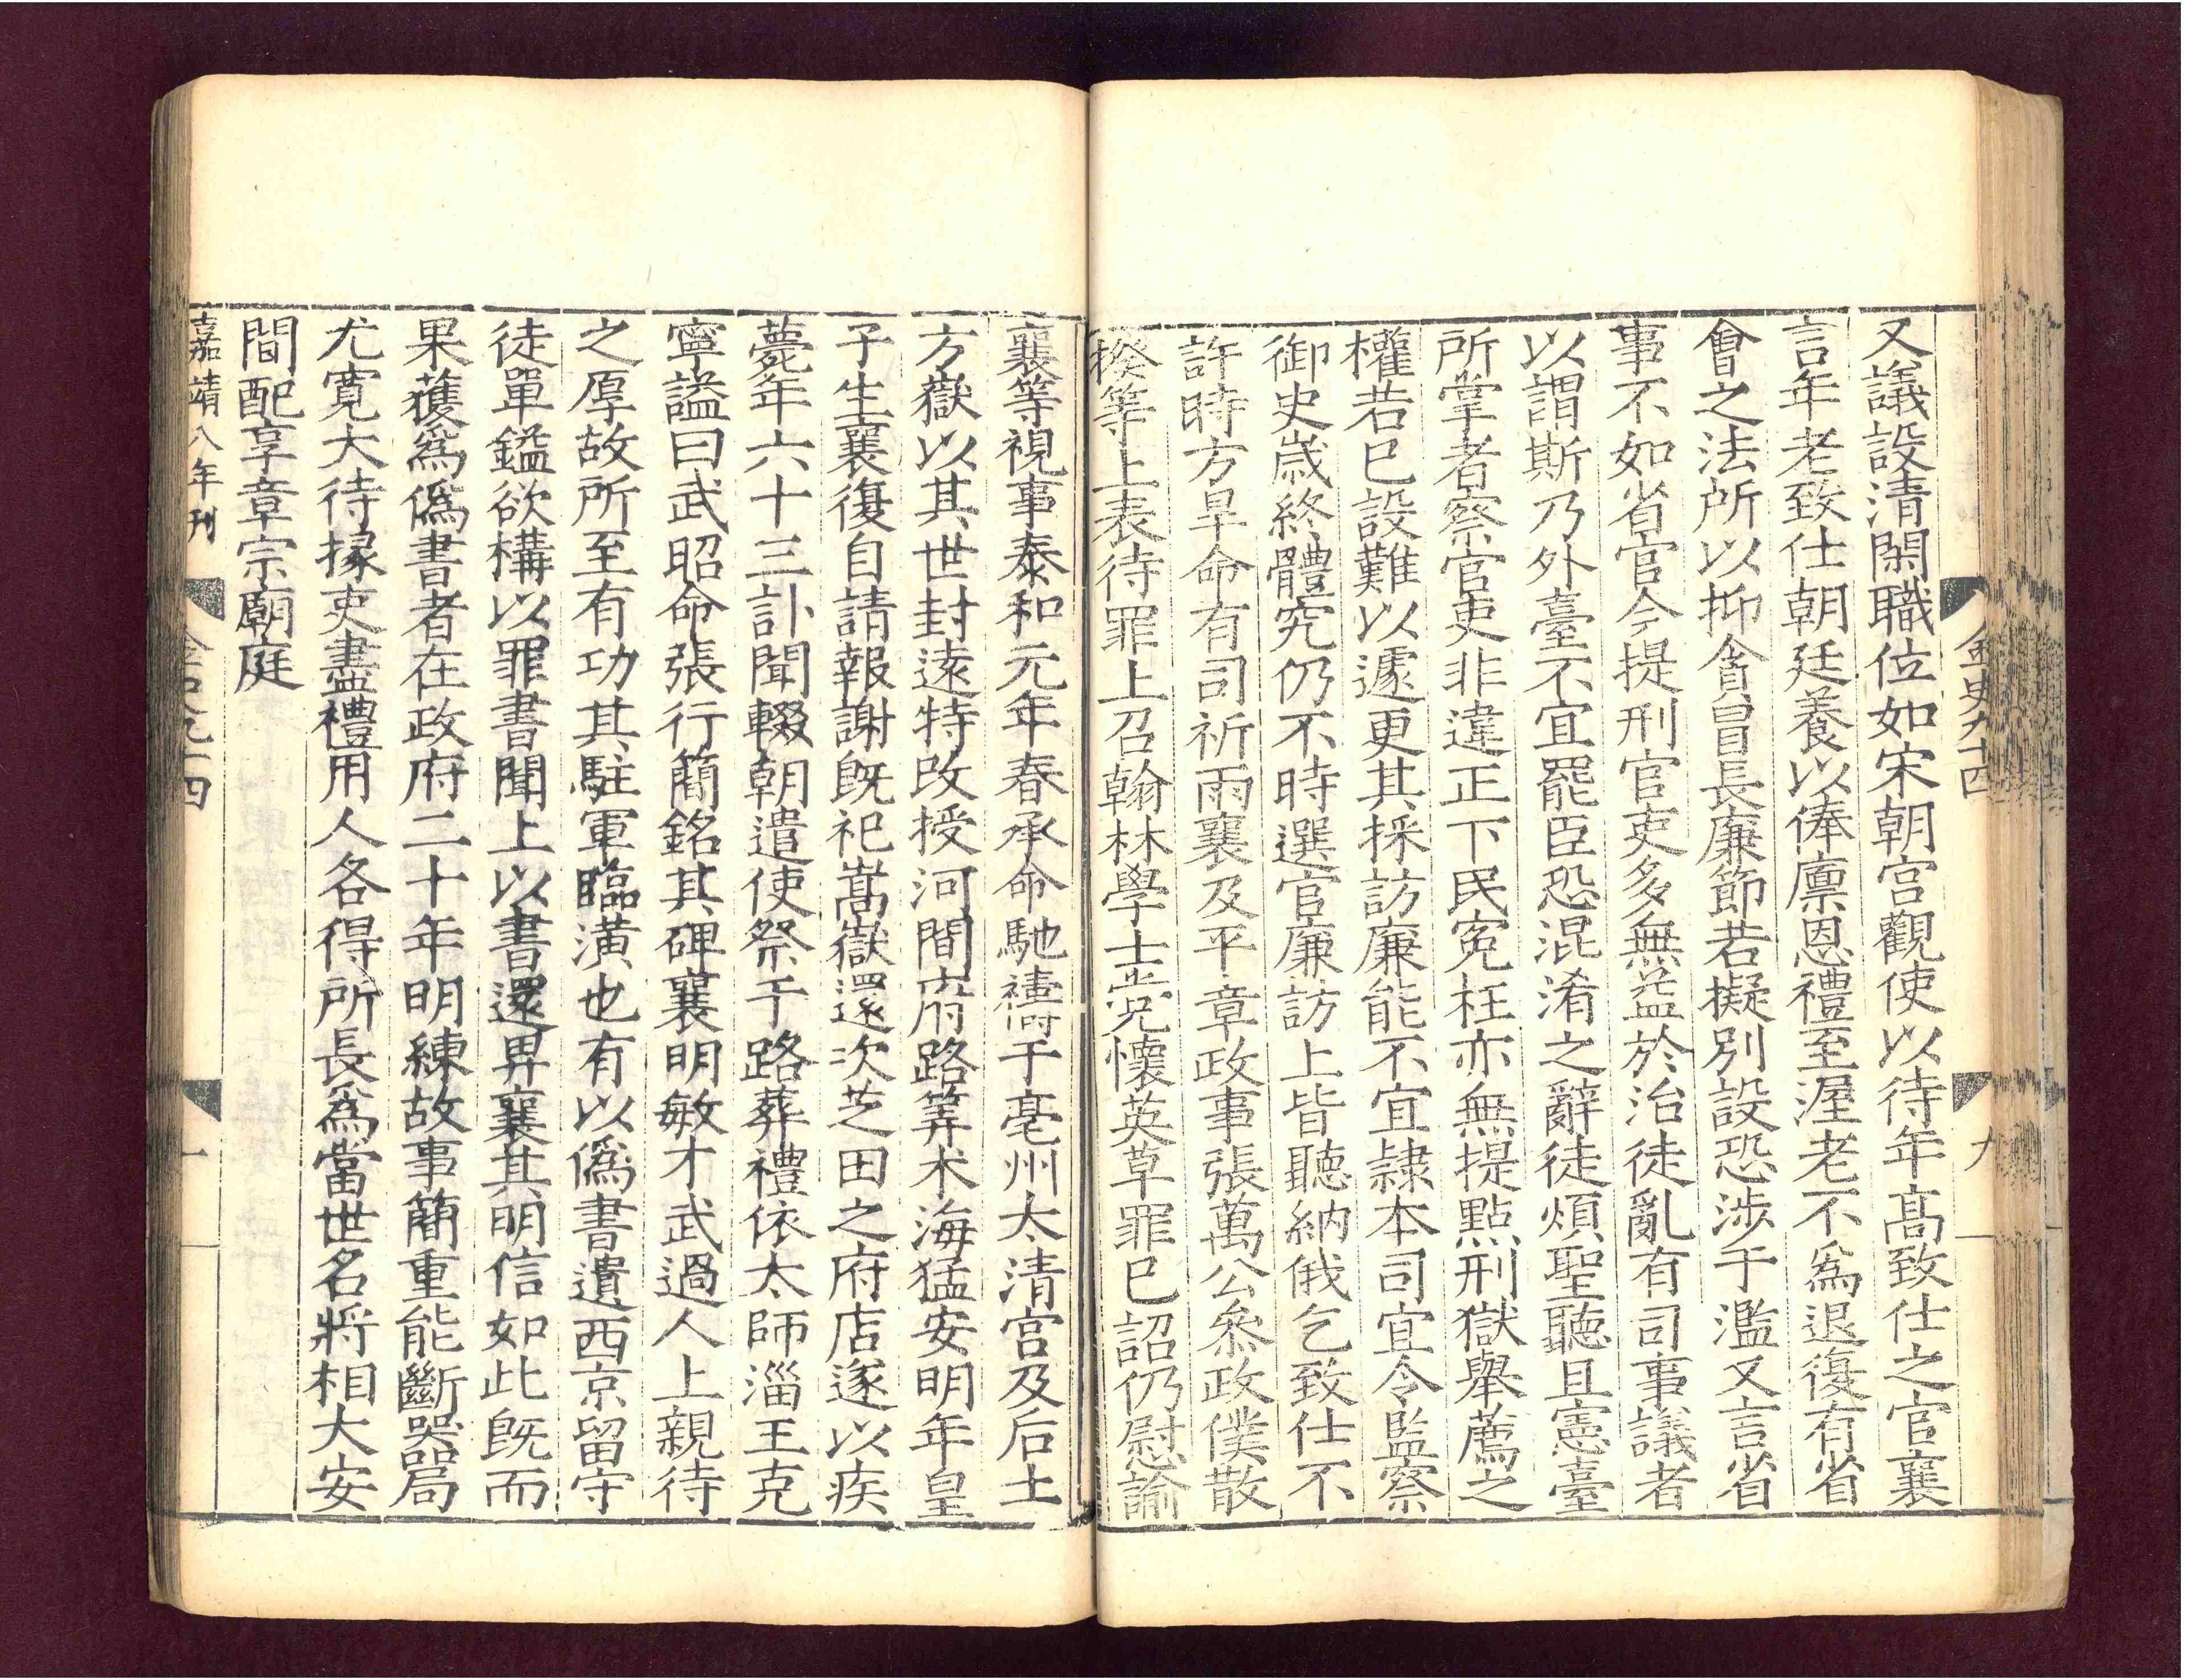 又議設清閑職位如宋朝宮觀使以待年高致仕之官襄
言年老致仕朝廷養以俸廪恩禮至渥老不爲退復有省
會之法所以抑貪冒長廉節若擬別設恐涉于濫又言省
事不如省官今提刑官吏多無益於治徒亂有司事議者
以謂斯乃外臺不宜罷臣恐混淆之辭徒煩聖聽且憲臺
所掌者察官吏非違正下民寃枉亦無提點刑獄舉薦之
權若巳設難以遽更其採訪廉能不宜隷本司宜令監察
御史歲終體究仍不時選官廉訪上皆聽納俄乞致仕不
許時方旱命有司祈雨襄及平章政事張萬公叅政僕散
揆等上表待罪上召翰林學士党懷英草罪巳詔仍慰諭
金史九十四
九
襄等視事泰和元年春承命馳禱于亳州太清宮及后土
方嶽以其世封遠特改授河間府路筭术海猛安明年皇
子生襄復自請報謝既祀嵩嶽還次芝田之府店遂以疾
薨年六十三訃聞輟朝遣使祭于路葬禮依太師淄王克
寧謚曰武昭命張行簡銘其碑襄明敏才武過人上親待
之厚故所至有功其駐軍臨潢也有以僞書遺西京留守
徒單鎰欲構以罪書聞上以書還畀襄其明信如此既而
果獲爲僞書者在政府二十年明練故事簡重能斷器局
尤寬大待掾吏盡禮用人各得所長爲當世名將相大安
間配享章宗廟庭
嘉靖八年刊